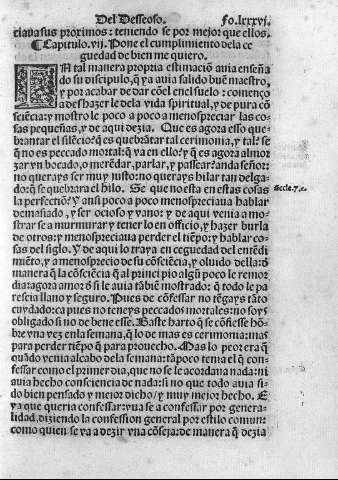 Del Desseoso. Fo.lxxxvj.
clava sus proximos: teniendo se por mejor que ellos.
¶ Capitulo. vij. Pone el cumplimiento dela ce
guedad de bien me quiero.
A tal manera propria estimaciõ avia enseña
do su discipulo, q̃ ya avia salido buẽ maestro,
y por acabar de dar cõel enel suelo: començo
a deshazer le dela vida spiritual, y de pura cõ
sciẽcia: y mostro le poco a poco a menospreciar las co-
sas pequeñas, y de aqui dezia. Que es agora esso que-
brantar el silẽcio: q̃ es quebrãtar tal cerimonia, y tal: se
q̃ no es peccado mortal: q̃ va en ello: y q̃ es agora almor
zar vn bocado, o merẽdar, parlar, y passear: anda señor:
no querays ser muy justo: no querays hilar tan delga-
do: q̃ se quebrara el hilo. Se que no esta en estas cosas
la perfectiõ? Y ansi poco a poco menospreciava hablar
demasiado, y ser ocioso y vano: y de aqui venia a mo-
strar se a murmurar y tener lo en officio, y hazer burla
de otros: y menospreciava perder el tiẽpo: y hablar co-
sas del siglo. Y de aqui lo traya en ceguedad del entẽdi
miẽto, y a menosprecio de su cõsciẽcia, y olvido della: õ
manera q̃ la cõsciẽcia q̃ al principio algũ poco le remor
dia: agora amor õ si le avia tãbiẽ mostrado: q̃ todo le pa
rescia llano y seguro. Pues de cõfessar no tẽgays tãto
cuydado: ca pues no teneys peccados mortales: no soys
obligado si no de bene esse. Baste harto q̃ se cõfiesse hõ-
bre vna vez enla semana, q̃ lo de mas es cerimonia: mas
para perder tiẽpo q̃ para provecho. Mas lo peor era q̃
quãdo venia al cabo dela semana: tãpoco tenia el q̃ con-
fessar como el primer dia, que no se le acordava nada: ni
avia hecho consciencia de nada: si no que todo avia si-
do bien pensado y mejor dicho / y muy mejor hecho. E
ya que queria confessar: yua se a confessar por genera-
lidad, diziendo la confession general por estilo comun:
como quien se va a dezir vna cõseja: de manera q̃ dezia